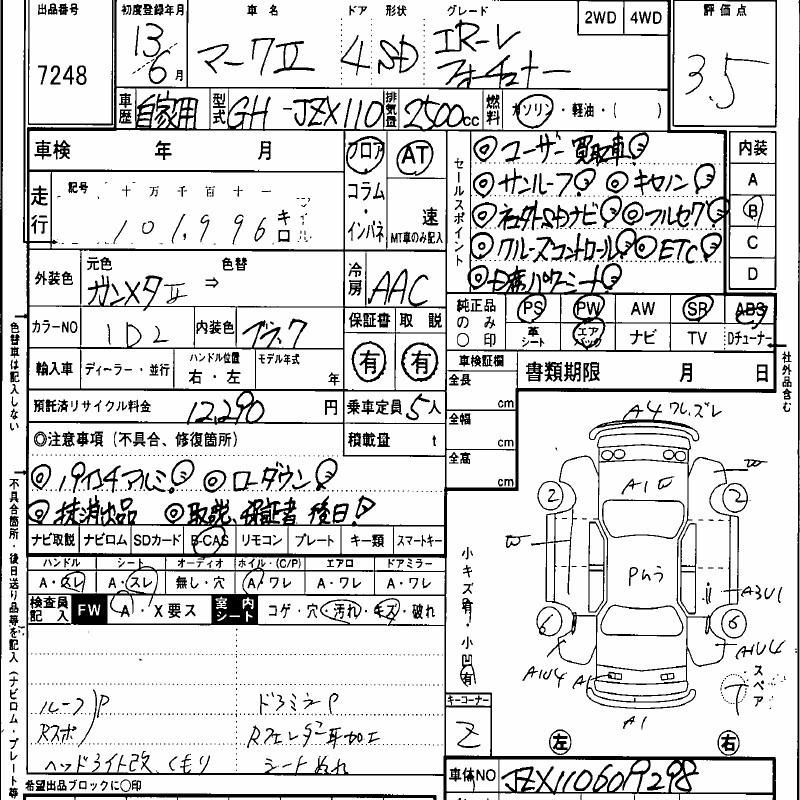 出品番号
7248
初度登録年月
13
6月
車名
マークⅡ
ドア
4
形状
SD
グレード
IR-V
フォーチュナー
2WD 4WD
評価点
3.5
車歴 自家用
型式 GH-JZX110
排気量 2500cc
燃料 ガソリン・軽油・( )
車検 年 月
フロア AT
コラム・インパネ
速
MT車のみ記入
走行
記号 十万千百十一
101,996 キロ マイル
セールスポイント
◎ユーザー買取車!
◎サンルーフ! ◎キセノン!
◎社外SDナビ! ◎フルセグ!
◎クルーズコントロール! ◎ETC!
◎D席パワーシート!
内装
A
B
C
D
外装色 元色 ガンメタⅡ ⇒ 色替
冷房 AAC
カラーNO 1D2
内装色 ブラック
保証書 取説
有 有
純正品のみ〇印
PS PW AW SR ABS
革シート エアバック ナビ TV Dチューナー
輸入車 ディーラー・並行
ハンドル位置 右・左
モデル年式 年
車検証欄
全長 cm
全幅 cm
全高 cm
書類期限 月 日
預託済リサイクル料金 12,290 円
乗車定員 5人
積載量 t
◎注意事項(不具合、修復箇所)
◎19インチアルミ! ◎ローダウン!
◎抹消出品 ◎取説、保証書 後日!
ナビ取説 ナビロム SDカード B-CAS リモコン プレート キー類 スマートキー
ハンドル シート オーディオ ホイル・(C/P) エアロ ドアミラー
A・スレ A・スレ 無し・穴 A・ワレ A・ワレ A・ワレ
検査員記入 FW A・X要ス 室内シート コゲ・穴・汚れ・キズ・破れ
ルーフ P
Rスポ
ヘッドライト改、くもり
ドアミラーP
Rフェンダー耳加工
シートぬれ
希望出品ブロックに〇印
色替車は記入しない
不具合箇所・後日送り品等を記入(ナビロム・プレート等
社外品含む
小キズ有・小凹有
キーコーナー
Z
A4 ワレ、ズレ
A1
2
2
Pルーフ
A3U1
6
6
A1U4
A1U4
A1
スペア
左
右
車体NO JZX1106019298